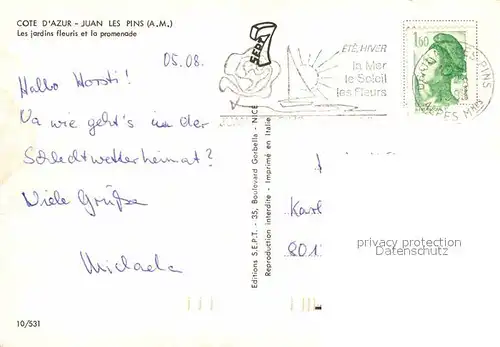 COTE D'AZUR - JUAN LES PINS (A.M.)
Les jardins fleuris et la promenade
05.08.
Hallo Horsti!
Na wie geht's in der
Schlechtwetterheimat?
Viele Grüße
Michaela
10/531
SEPT
Editions S.E.P.T. - 35, Boulevard Gorbella - NICE
Reproduction interdite - Imprimé en Italie
ÉTÉ, HIVER
la Mer
le Soleil
les Fleurs
1,60
PINS
ALPES MMES
Karl
801
privacy protection
Datenschutz